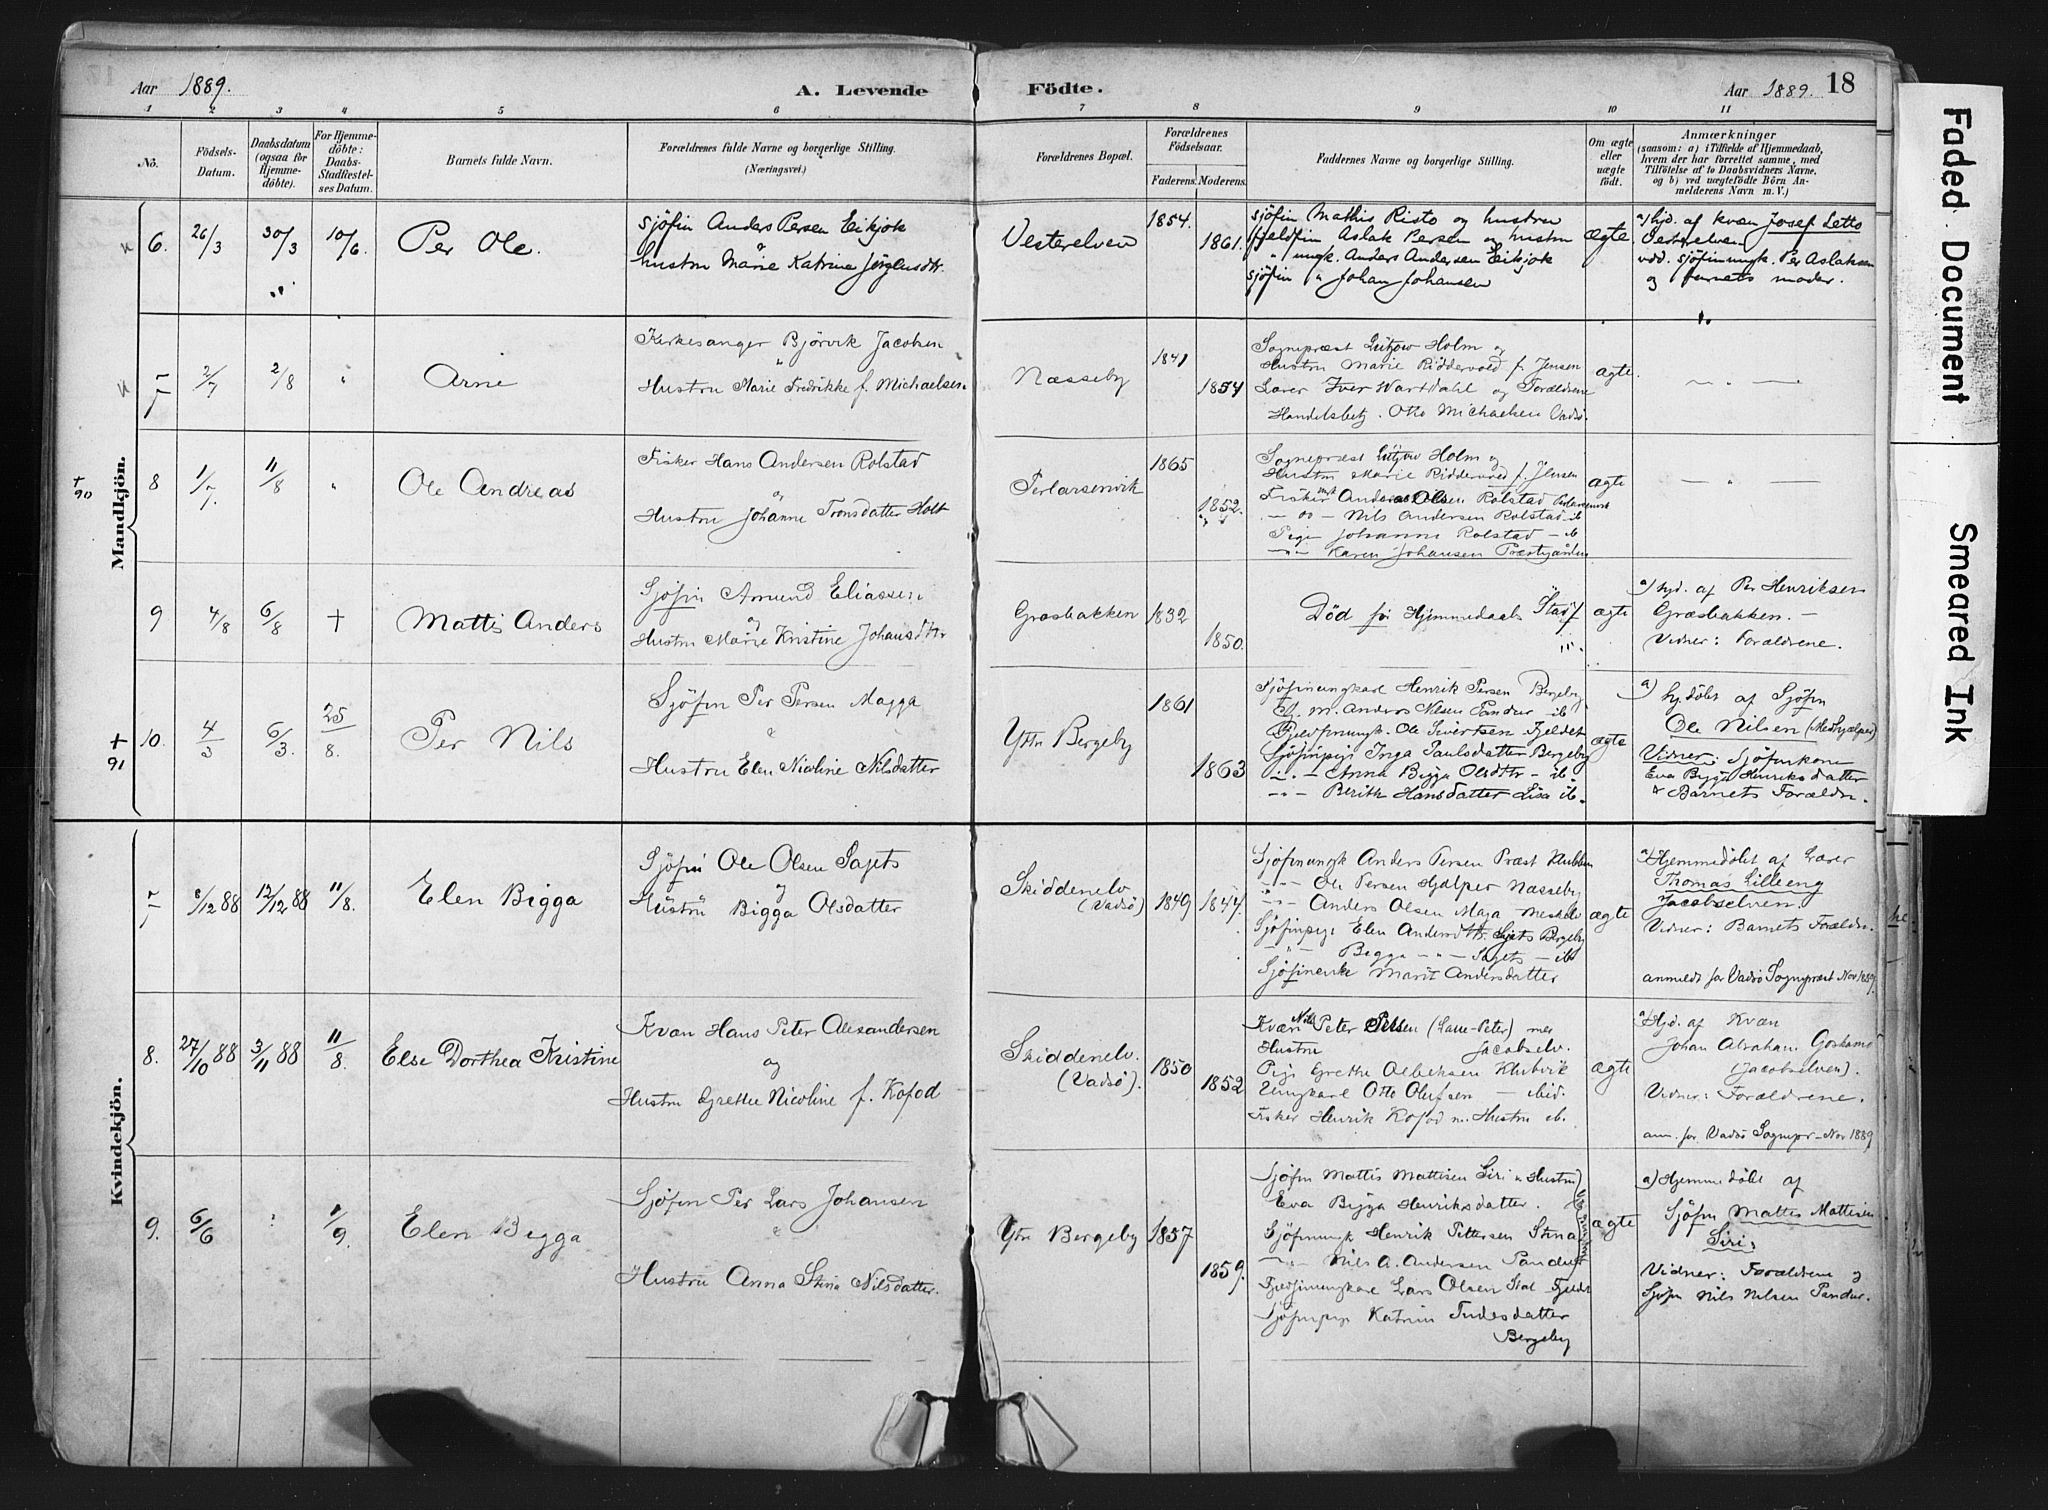 Aar 1889.
A. Levende Födte.
Aar 1889. 18
1 2 3 4 5 6 7 8 9 10 11
Nö.
Födsels-Datum.
Daabsdatum (ogsaa for Hjemme-döbte).
For Hjemme-döbte: Daabs-Stadfestel-ses Datum.
Barnets fulde Navn.
Forældrenes fulde Navne og borgerlige Stilling.
(Næringsvei.)
Forældrenes Bopæl.
Forældrenes Födselsaar.
Faderens. Moderens.
Faddernes Navne og borgerlige Stilling.
Om ægte eller uægte födt.
Anmærkninger
(saasom: a) i Tilfælde af Hjemmedaab,
hvem der har forrettet samme, med
Tilföielse af to Daabsvidners Navne,
og b) ved uægtefödte Börn An-
melderens Navn m. V.)
Mandkjön.
6. 26/3 30/3 10/6. Per Ole.
sjöfin Anders Persen Eikjok
&
hustru Marie Katrine Jörgensdtr.
Vesterelven
1854.
1861.
sjöfin Mathis Risto og hustru
fjeldfin Aslak Persen og hustru
" ungk. Anders Andersen Eikjok
sjöfin " Johan Johansen
ægte
a) hjd. af kvæn Josef Letto
Vesterelven
vdd. sjöfinungk. Per Aslaksen
og barnets moder.
7 2/7 2/8 " Arne
Kirkesanger Björvik Jacobsen
"
Hustru Marie Fredrikke f. Michaelsen
Næsseby
1841
1854
Sognepræst Lützow Holm og
Hustru Marie Riddervold f. Jensen
Lærer Iver Wartdahl og Forældrene
Handelsbetj. Otto Michaelsen Vadsö.
ægte
— " —
+ 90
8 1/7. 11/8 " Ole Andreas
Fisker Hans Andersen Rolstad
og
Hustru Johanne Tronsdatter Holt
Perlarsenvik
1865
1852.
Sognepræst Lützow Holm og
Hustru Marie Riddervold f. Jensen
Fisker Anders Olsen Rolstad
— " — Nils Andersen Rolstad — ib
Pige Johanne Rolstad — ib
— " — Karen Johansen Præstgården
ægte
— " —
9 4/8 6/8 + Mattis Anders
Sjöfin Amund Eliassen
og
Hustru Marie Kristine Johansdtr
Græsbakken
1832
1850.
Död för Hjemmedaabs Stadf
ægte
a) hjd. af Per Henriksen
Græsbakken. —
Vidner: Forældrene.
+ 91
10. 4/3 6/3. 25/8. Per Nils
Sjöfin Per Persen Magga
&
Hustru Elen Nicoline Nilsdatter
Yttr Bergeby
1861
1863
Sjöfinungkarl Henrik Persen Bergeby
Anders Nilsen Pandur ib
Fjeldfinungk. Ole Sivertsen Fjeldet
Sjöfinpige Inga Paulsdatter Bergeby
— " — Anna Bigga Olsdtr — ib —
— " — Berith Hansdatter Lisa ib —
ægte
a) hjdöbt af Sjöfin
Ole Nilsen (Medhjælper)
Vidner: Sjöfinkone
Eva Bigga Henriksdatter
& Barnets Forældr.
Kvindekjön.
7 8/12 88 12/12 88 11/8. Elen Bigga
Sjöfin Ole Olsen Sajets
og
Hustru Bigga Olsdatter
Skiddenelv
(Vadsö)
1849
1847.
Sjöfinungk Anders Persen Præst Klubben
— " — Ole Persen Hjælper Næsseby
— " — Anders Olsen Maja Meskelv
Sjöfinpige Elen Andersdtr. Sajets Bergeby
— " — Bigga — " — Sajets — ib
Sjöfinenke Marit Andersdatter
ægte
a) Hjemmedöbt af Lærer
Thomas Lilleeng
Jacobselven.
Vidner: Barnets Forældr.
anmeldt for Vadsö Sognepræst Nov 1889.
8. 27/10 88 3/11 88 11/8. Else Dorthea Kristine
Kvæn Hans Peter Alexandersen
og
Hustru Grethe Nicoline f. Kofod
Skiddenelv.
(Vadsö).
1850
1852
Kvæn Nils Peter (Lasse-Peter) med
Hustru Jacobselv.
Pige Grethe Albeksen Klubvik
Ungkarl Otto Olufsen — ibid.
Fisker Henrik Kofod m. Hustru ib.
ægte
a) Hjd. af Kvæn
Johan Abraham
(Jacobselven).
Vidner: Forældrene.
anm. for Vadsö Sognepr — Nov 1889
9. 6/6 ? 1/9. Elen Bigga
Sjöfin Per Lars Johansen
&
Hustru Anna Stina Nilsdatter.
Ytr Bergeby
1857
1859.
Sjöfin Mattis Mattisen Siri & Hustru
Eva Bigga Henriksdatter.
Sjöfinungk Henrik Pettersen Stina
— " — Nils A. Andersen Pandur
Fjeldfinungkarl Lars Olsen Fjeldet
Sjöfinpige Katrine Judesdatter
Bergeby
ægte
a) Hjemmedöbt af
Sjöfin Mattis Mattisen
Siri.
Vidner: Forældrene og
Sjöfin Nils Nilsen Pandur.
Faded Document
Smeared Ink